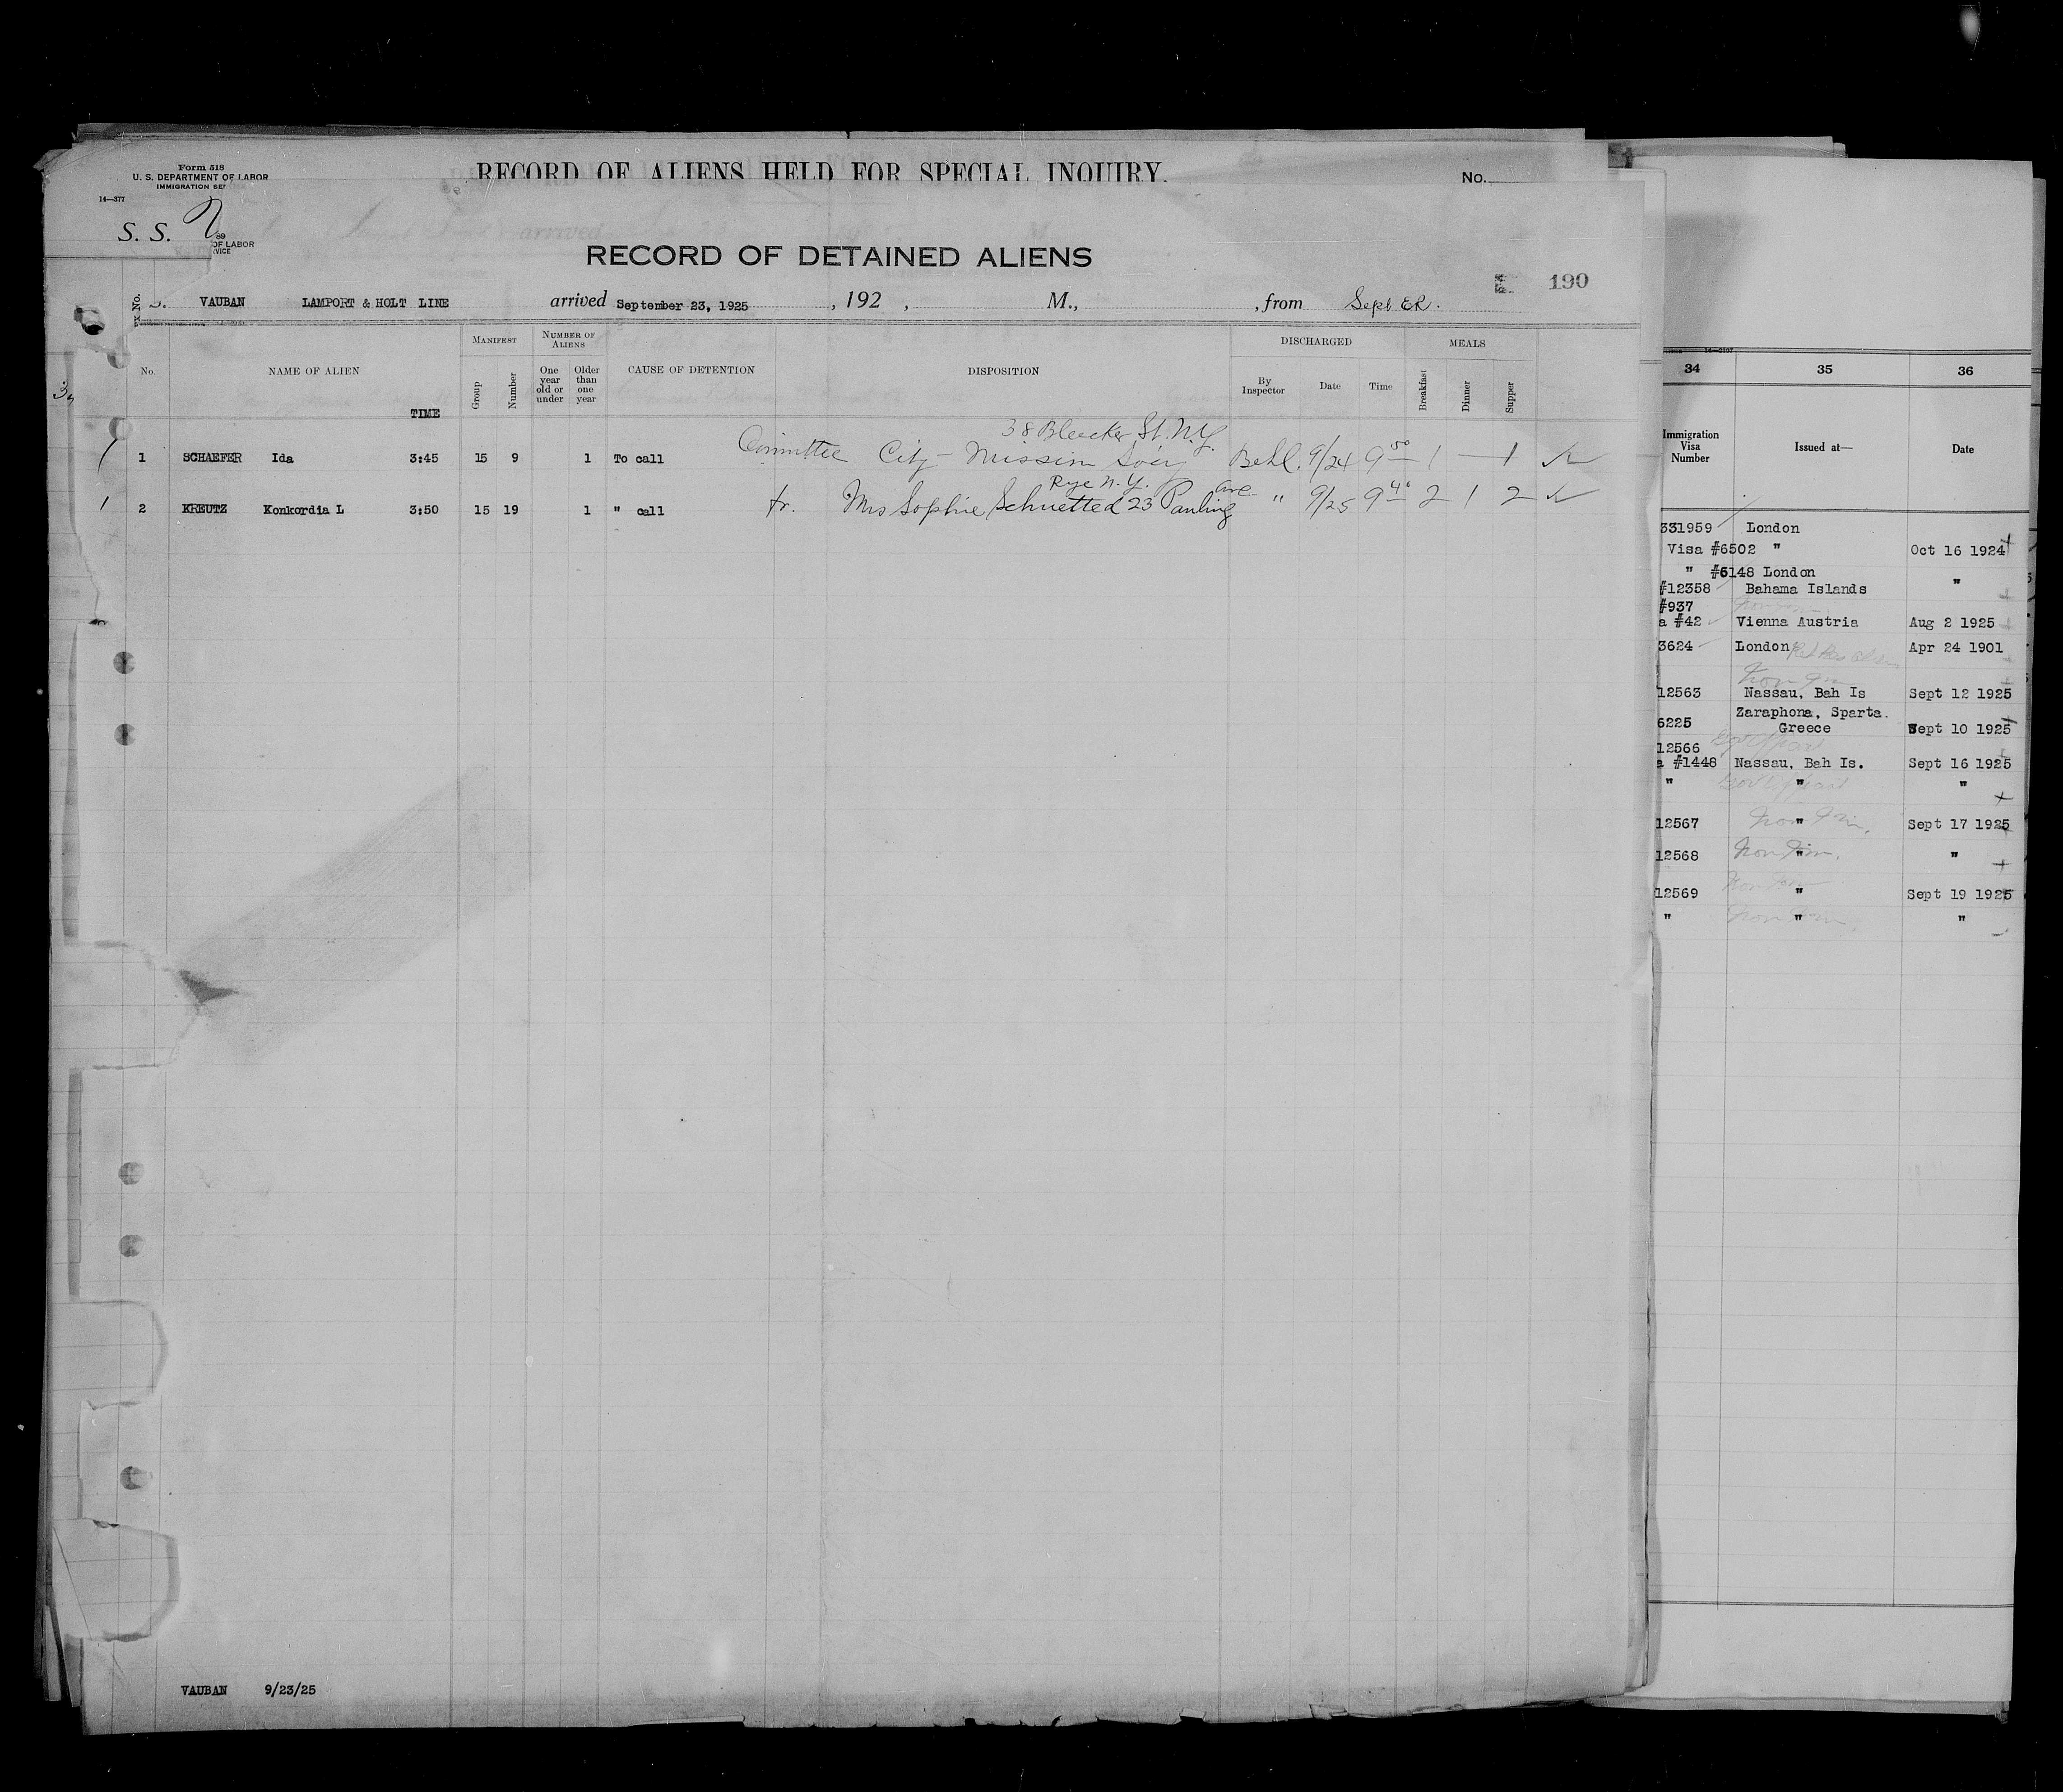 Form 518
U. S. DEPARTMENT OF LABOR
14—377
RECORD OF ALIENS HELD FOR SPECIAL INQUIRY.
No.
S. S.
89
OF LABOR
VICE
RECORD OF DETAINED ALIENS
190
S. VAUBAN LAMPORT & HOLT LINE arrived September 23, 1925, 192 , M., , from Sept ER.
No. NAME OF ALIEN TIME MANIFEST Group Number NUMBER OF ALIENS One year old or under Older than one year CAUSE OF DETENTION DISPOSITION DISCHARGED By Inspector Date Time MEALS Breakfast Dinner Supper
38 Bleecker St. N.Y.
1 1 SCHAEFER Ida 3:45 15 9 1 To call Committee City Mission Soc'y Behl. 9/24 9 50 1 — 1
Rye N.Y. Ave
1 2 KREUTZ Konkordia L 3:50 15 19 1 " call fr. Mrs Sophie Schuetted 23 Panling " 9/25 9 40 2 1 2
VAUBAN 9/23/25
34 35 36
Immigration Visa Number Issued at— Date
331959 London
Visa #6502 " Oct 16 1924
" #6148 London
#12358 Bahama Islands "
#937
a #42 Vienna Austria Aug 2 1925
3624 London Apr 24 1901
12563 Nassau, Bah Is Sept 12 1925
Zaraphona, Sparta.
6225 Greece Sept 10 1925
12566
a #1448 Nassau, Bah Is. Sept 16 1925
" " "
12567 " Sept 17 1925
12568 " "
12569 " Sept 19 1925
" " "